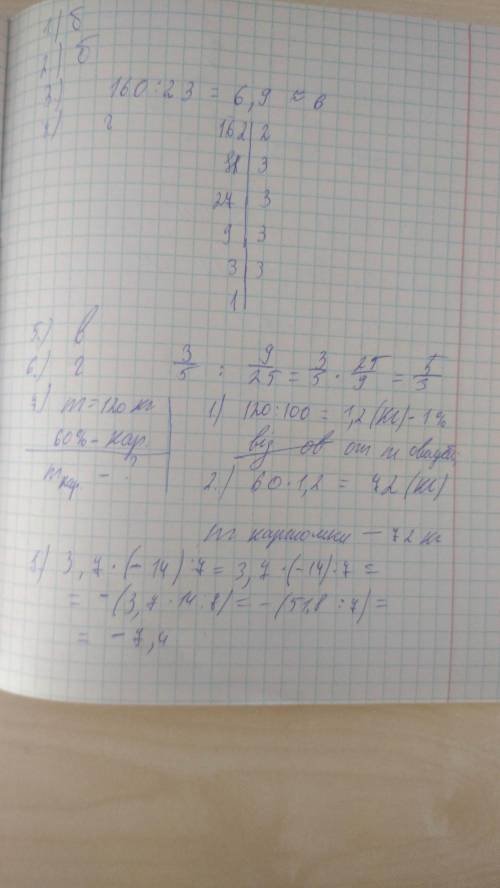 1) б
2) б
3) 160 : 23 = 6,9 ≈ в
4) г
162 | 2
81 | 3
27 | 3
9 | 3
3 | 3
1
5) в
6) г 3/5 : 9/25 = 3/5 · 25/9 = 5/3
7) m = 120 кг
60% - кар.
m кар. - ?
1) 120 : 100 = 1,2 (кг) - 1%
від от m
2) 60 · 1,2 = 72 (кг)
m - 72 кг
8) 3,7 · (-14) : 7 = 3,7 · (-14) : 7 =
= -(3,7 · 14 : 7) = -(51,8 : 7) =
= -7,4